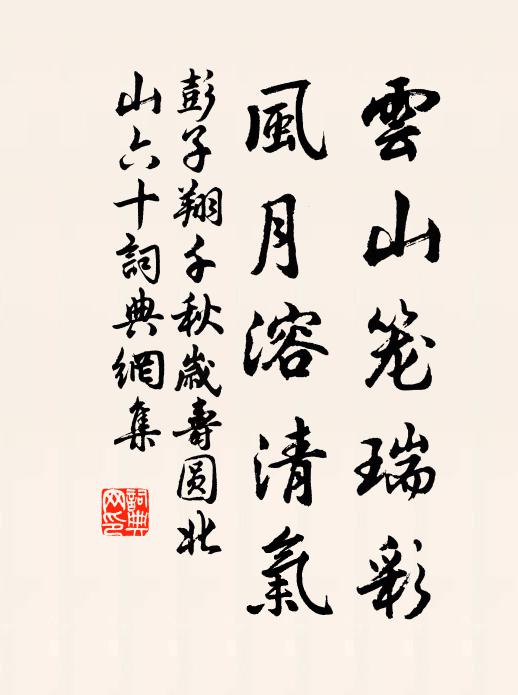 雲山笼瑞彩
風月溶清氣
彭子翔千秋歲壽圆北
山六十詞典網集
詞典
网印